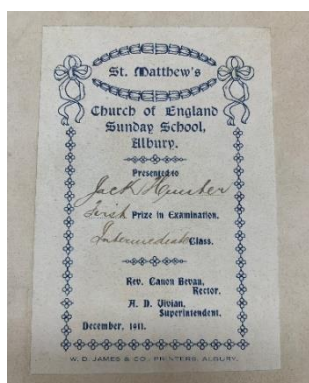 St. Matthew's
Church of England
Sunday School,
Albury.
Presented to
Jack Hunter
First Prize in Examination.
Intermediate Class.
Rev. Canon Bevan,
Rector.
A. D. Vivian,
Superintendent.
December, 1911.
W. D. JAMES & CO., PRINTERS, ALBURY.